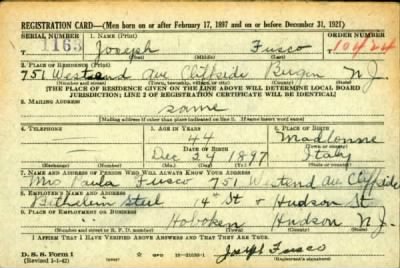 REGISTRATION CARD—(Men born on or after February 17, 1897 and on or before December 31, 1921)
SERIAL NUMBER 1. NAME (Print) ORDER NUMBER
1163 Joseph Fusco 10424
(First) (Middle) (Last)
2. PLACE OF RESIDENCE (Print)
751 Westend Ave Cliffside Bergin N J
(Number and street) (Town, township, village, or city) (County) (State)
[THE PLACE OF RESIDENCE GIVEN ON THE LINE ABOVE WILL DETERMINE LOCAL BOARD
JURISDICTION; LINE 2 OF REGISTRATION CERTIFICATE WILL BE IDENTICAL]
3. MAILING ADDRESS
same
[Mailing address if other than place indicated on line 2. If same insert word same]
4. TELEPHONE 5. AGE IN YEARS 6. PLACE OF BIRTH
44 Madlonne
DATE OF BIRTH
Dec 24 1897 Italy
(Exchange) (Number) (Mo.) (Day) (Yr.) (State or country)
7. NAME AND ADDRESS OF PERSON WHO WILL ALWAYS KNOW YOUR ADDRESS
Mrs Paula Fusco 751 Westend Ave Cliffside
8. EMPLOYER'S NAME AND ADDRESS
Bethelem Steel 14th St & Hudson St
9. PLACE OF EMPLOYMENT OR BUSINESS
Hoboken Hudson N. J.
(Number and street or R. F. D. number) (Town) (County) (State)
I AFFIRM THAT I HAVE VERIFIED ABOVE ANSWERS AND THAT THEY ARE TRUE.
D. S. S. Form 1
(Revised 1-1-42) Joseph Fusco